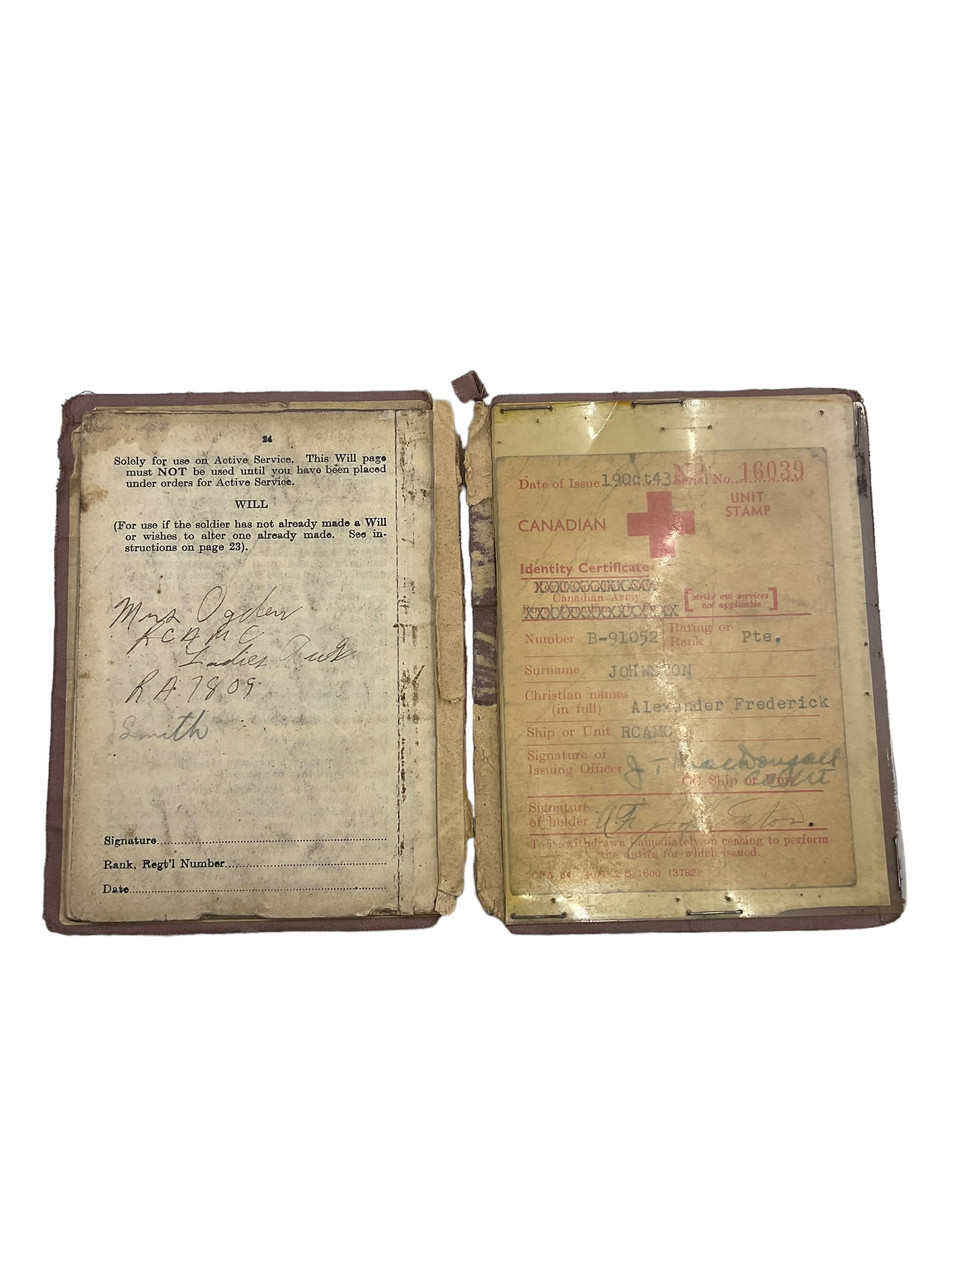 24
Solely for use on Active Service. This Will page
must NOT be used until you have been placed
under orders for Active Service.
WILL
(For use if the soldier has not already made a Will
or wishes to alter one already made. See in-
structions on page 23).
Mrs Ogden
RCAMC
Ladies
RA. 7809
Smith
Signature
Rank, Regt'l Number
Date
Date of Issue 19Oct43 Serial No. 16039
UNIT
STAMP
CANADIAN
Identity Certificate
Canadian Army
[strike out services
not applicable]
Number B-91052 Rating or
Rank Pte.
Surname JOHNSTON
Christian names
(in full) Alexander Frederick
Ship or Unit RCAMC
Signature of
Issuing Officer J T MacDougall
OC Ship or Unit
Signature
of holder A F Johnston.
To be withdrawn immediately on ceasing to perform
the duties for which issued.